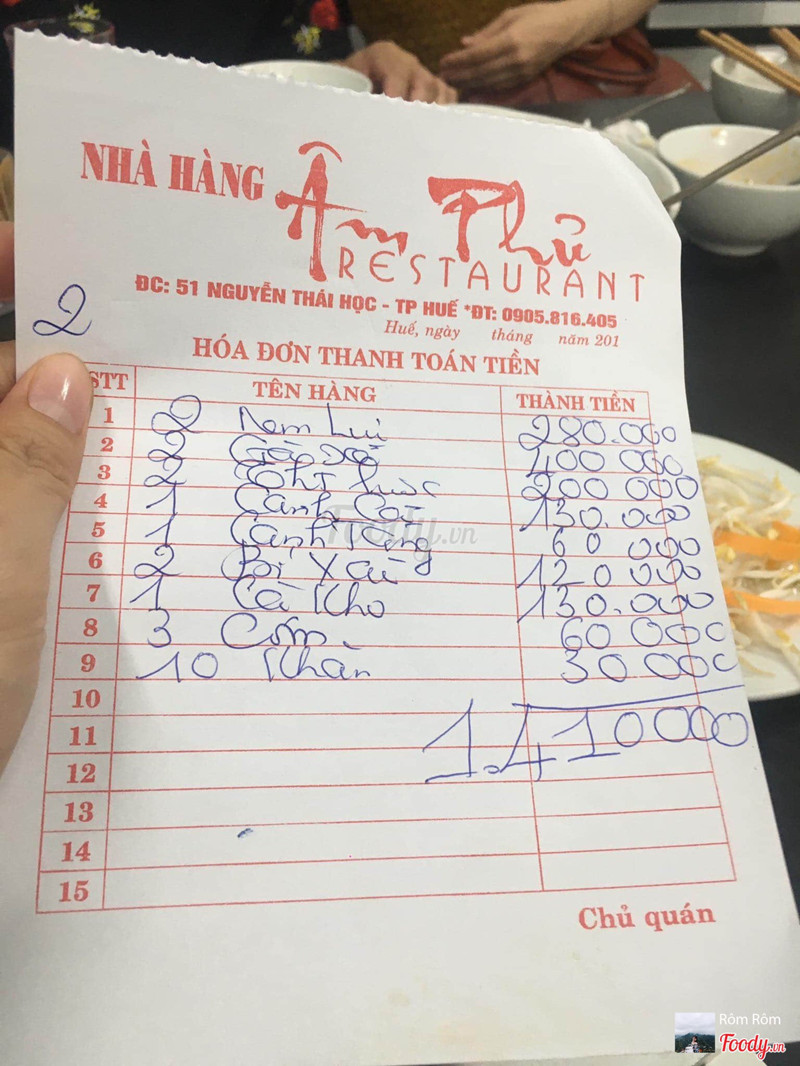 NHÀ HÀNG Âm Phủ
RESTAURANT
ĐC: 51 NGUYỄN THÁI HỌC - TP HUẾ *ĐT: 0905.816.405
Huế, ngày tháng năm 201
2
HÓA ĐƠN THANH TOÁN TIỀN
STT TÊN HÀNG THÀNH TIỀN
1 2 Nem Lụi 280.000
2 2 Gỏi 400 000
3 2 Thịt luộc 200 000
4 1 Canh Cá 130.000
5 1 Canh 60 000
6 2 Bò 120 000
7 1 Cá Kho 130.000
8 3 Cơm 60 000
9 10 Khăn 30 000
10
11 1.410000
12
13
14
15
Chủ quán
Foody.vn
Rôm Rôm
Foody.vn